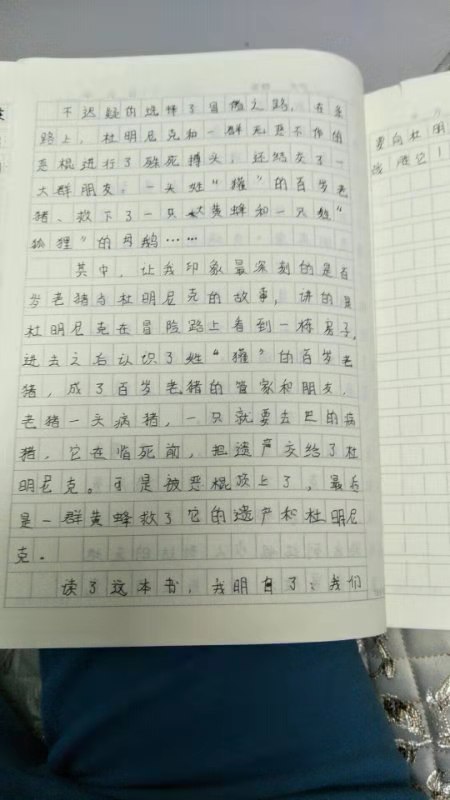 不迟疑的选择了冒险之路，在条
路上，杜明尼克和一群无恶不作的
恶棍进行了殊死搏斗，还结交了一
大群朋友：一头姓“獾”的百岁老
猪、救下了一只大黄蜂和一只姓“
狐狸”的母鹅……
其中，让我印象最深刻的是百
岁老猪与杜明尼克的故事，讲的是
杜明尼克在冒险路上看到一栋房子，
进去之后认识了姓“獾”的百岁老
猪，成了百岁老猪的管家和朋友，
老猪一头病猪，一只就要去巴的病
猪，它在临死前，把遗产交给了杜
明尼克。可是被恶棍盯上了，最后
是一群黄蜂救了它的遗产和杜明尼
克。
读了这本书，我明白了：我们
要向杜明
战胜它！